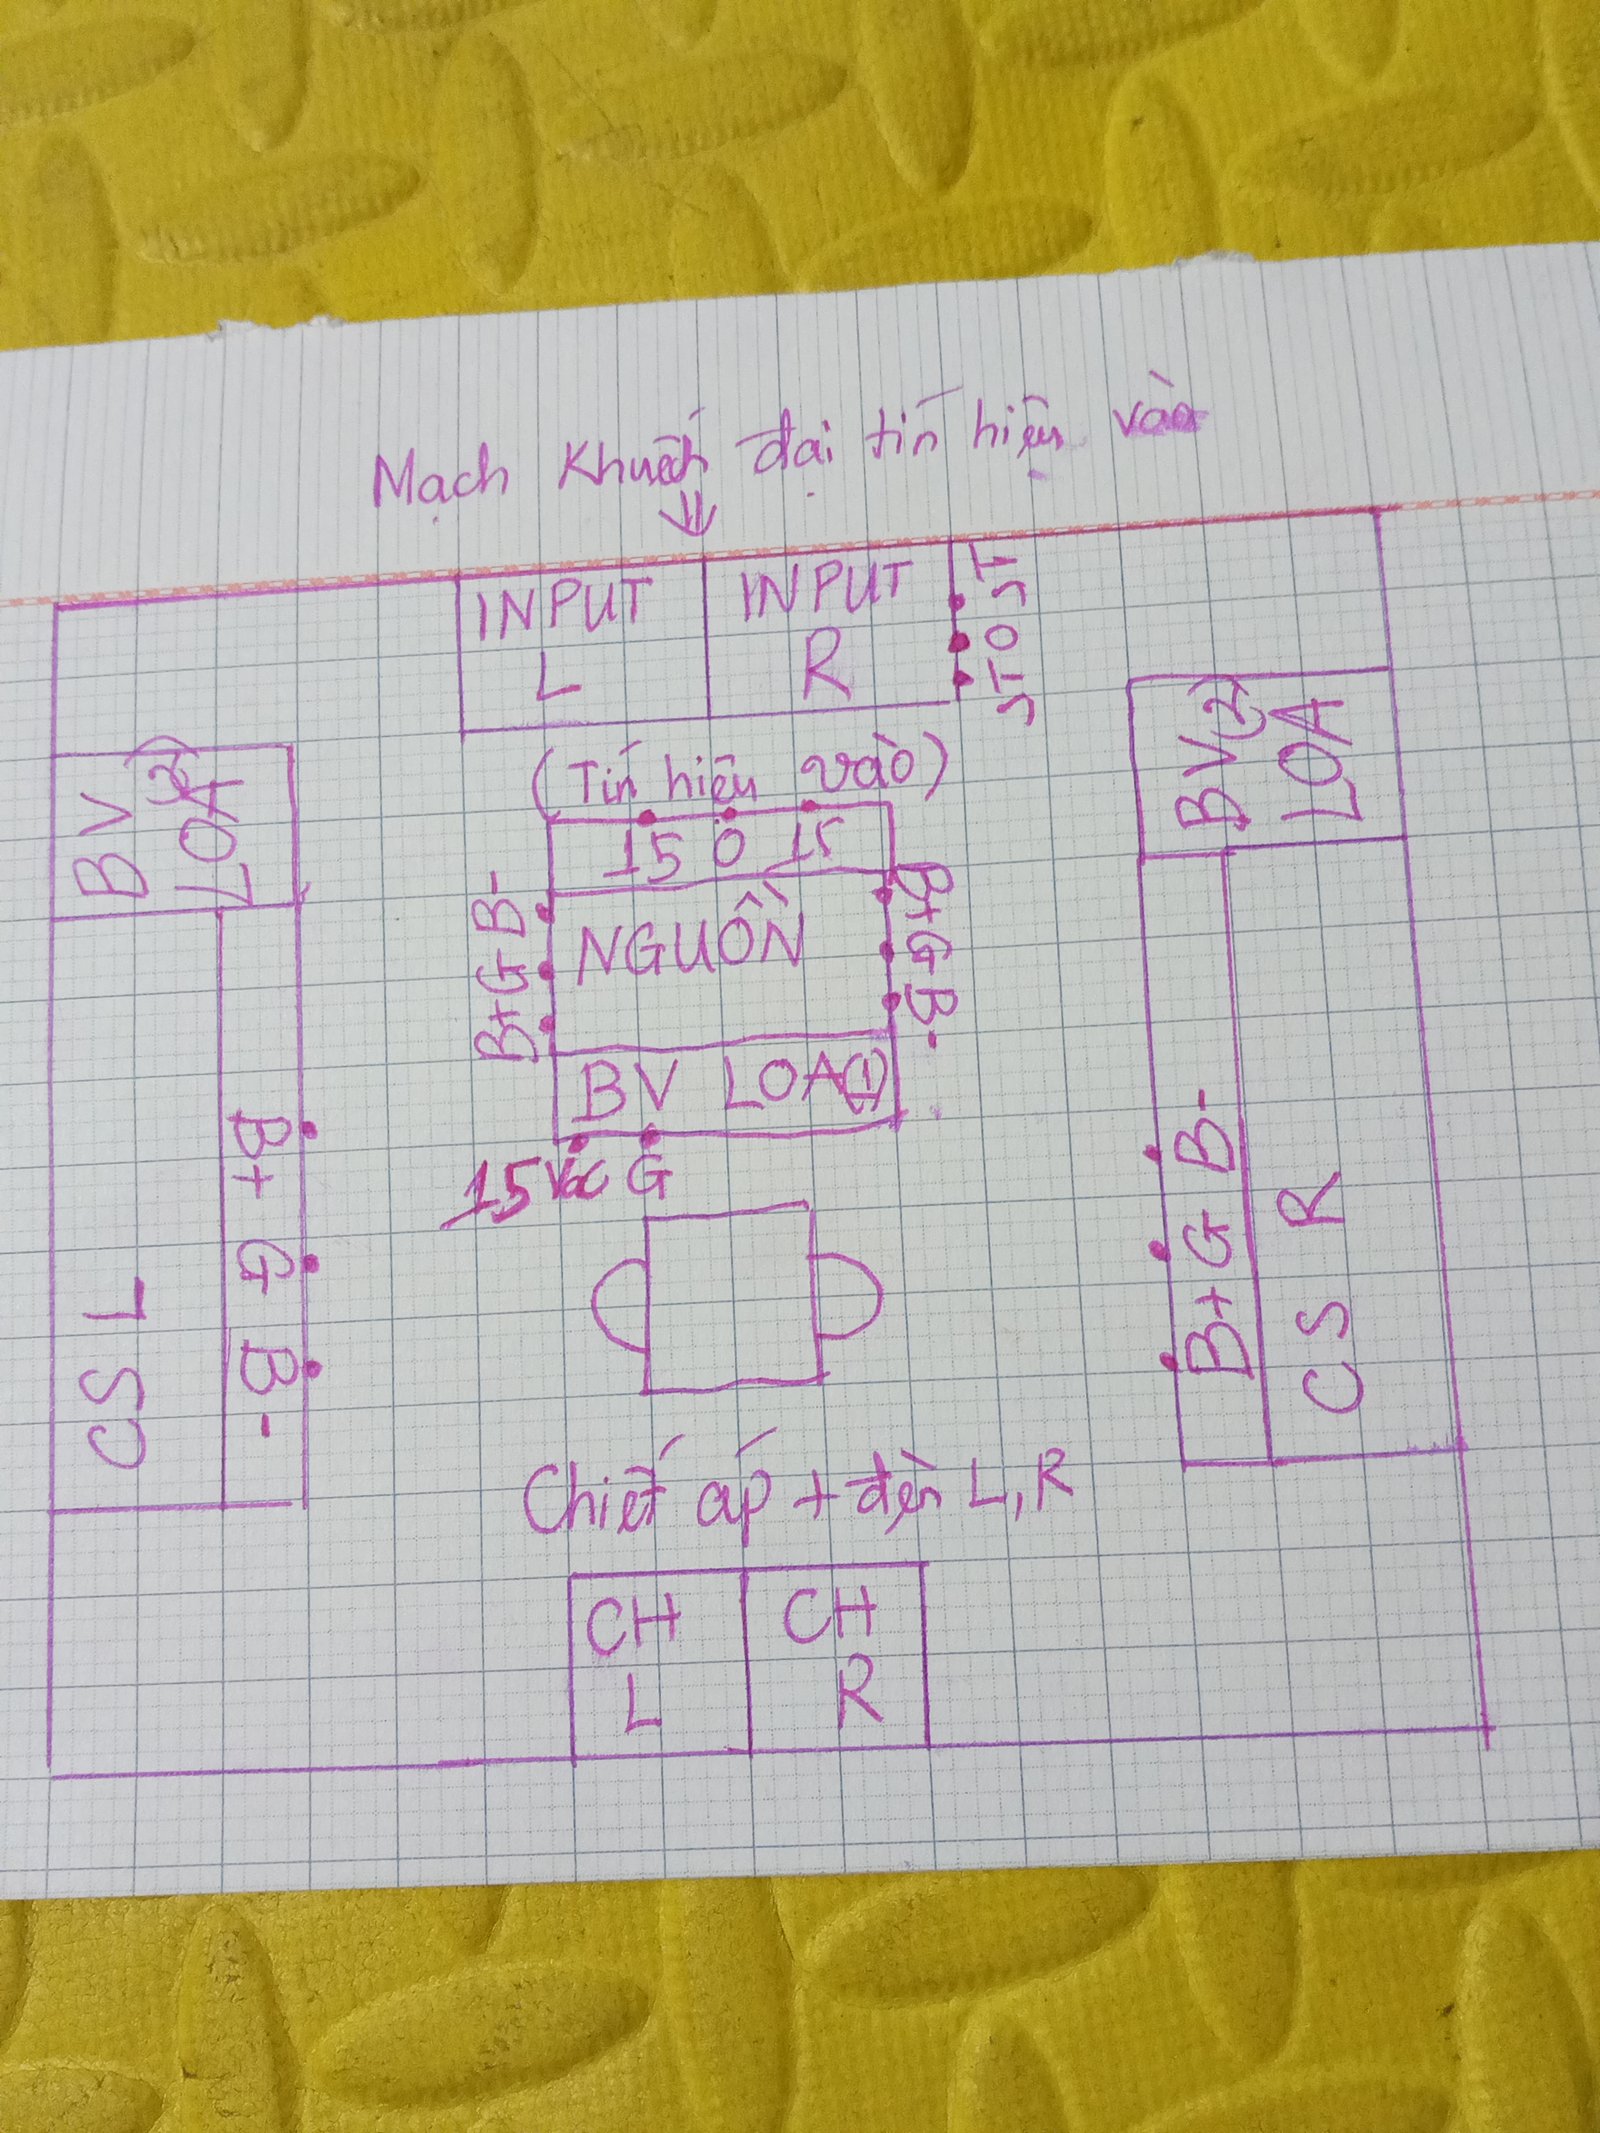 Mạch Khuếch đại tín hiệu vào
INPUT
L
INPUT
R
15 0 15
(Tín hiệu vào)
15 0 15
NGUỒN
B+ G B-
B+ G B-
BV LOA(1)
15 Vdc G
BV(2)
LOA
BV(2)
LOA
CS L
B+ G B-
B+ G B-
CS R
Chiết áp + đèn L, R
CH
L
CH
R